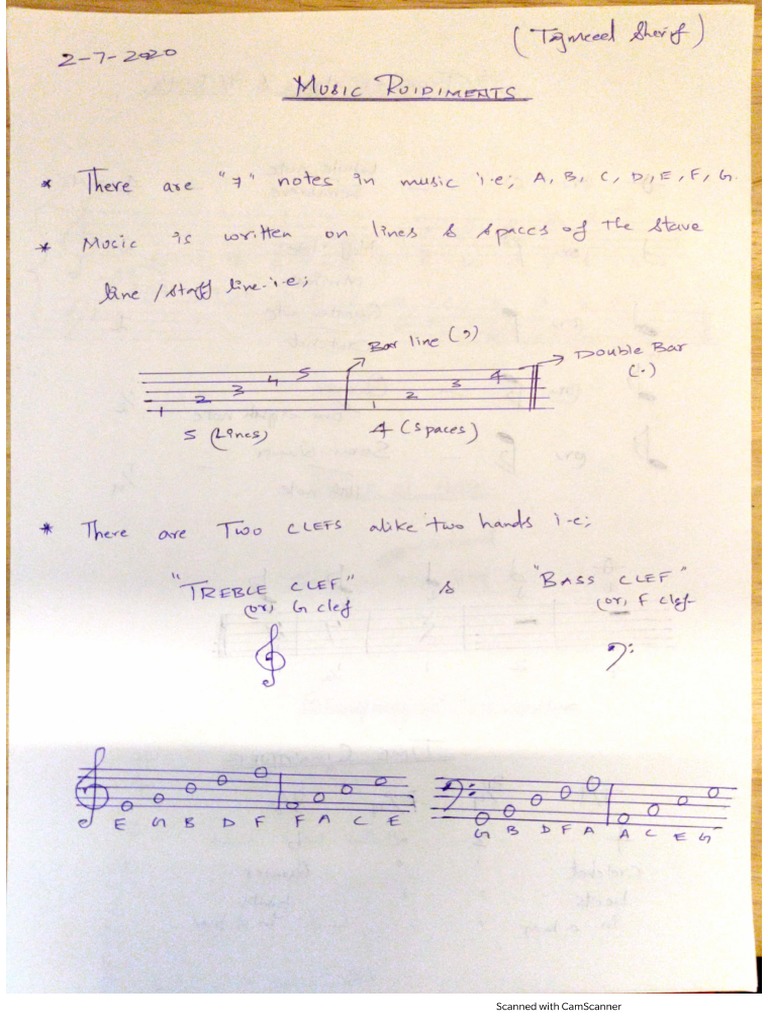 2-7-2020
(Tajmeeel Sherif)
MUSIC RUIDIMENTS
* There are "7" notes in music i.e; A, B, C, D, E, F, G.
* Music is written on lines & spaces of the stave
line / staff line i.e;
Bar line (,)
Double Bar
(.)
1 2 3 4 5 1 2 3 4
5 (Lines) 4 (spaces)
* There are Two CLEFS alike two hands i.e;
"TREBLE CLEF" & "BASS CLEF"
(or) G clef (or) F clef
E G B D F F A C E G B D F A A C E G
Scanned with CamScanner